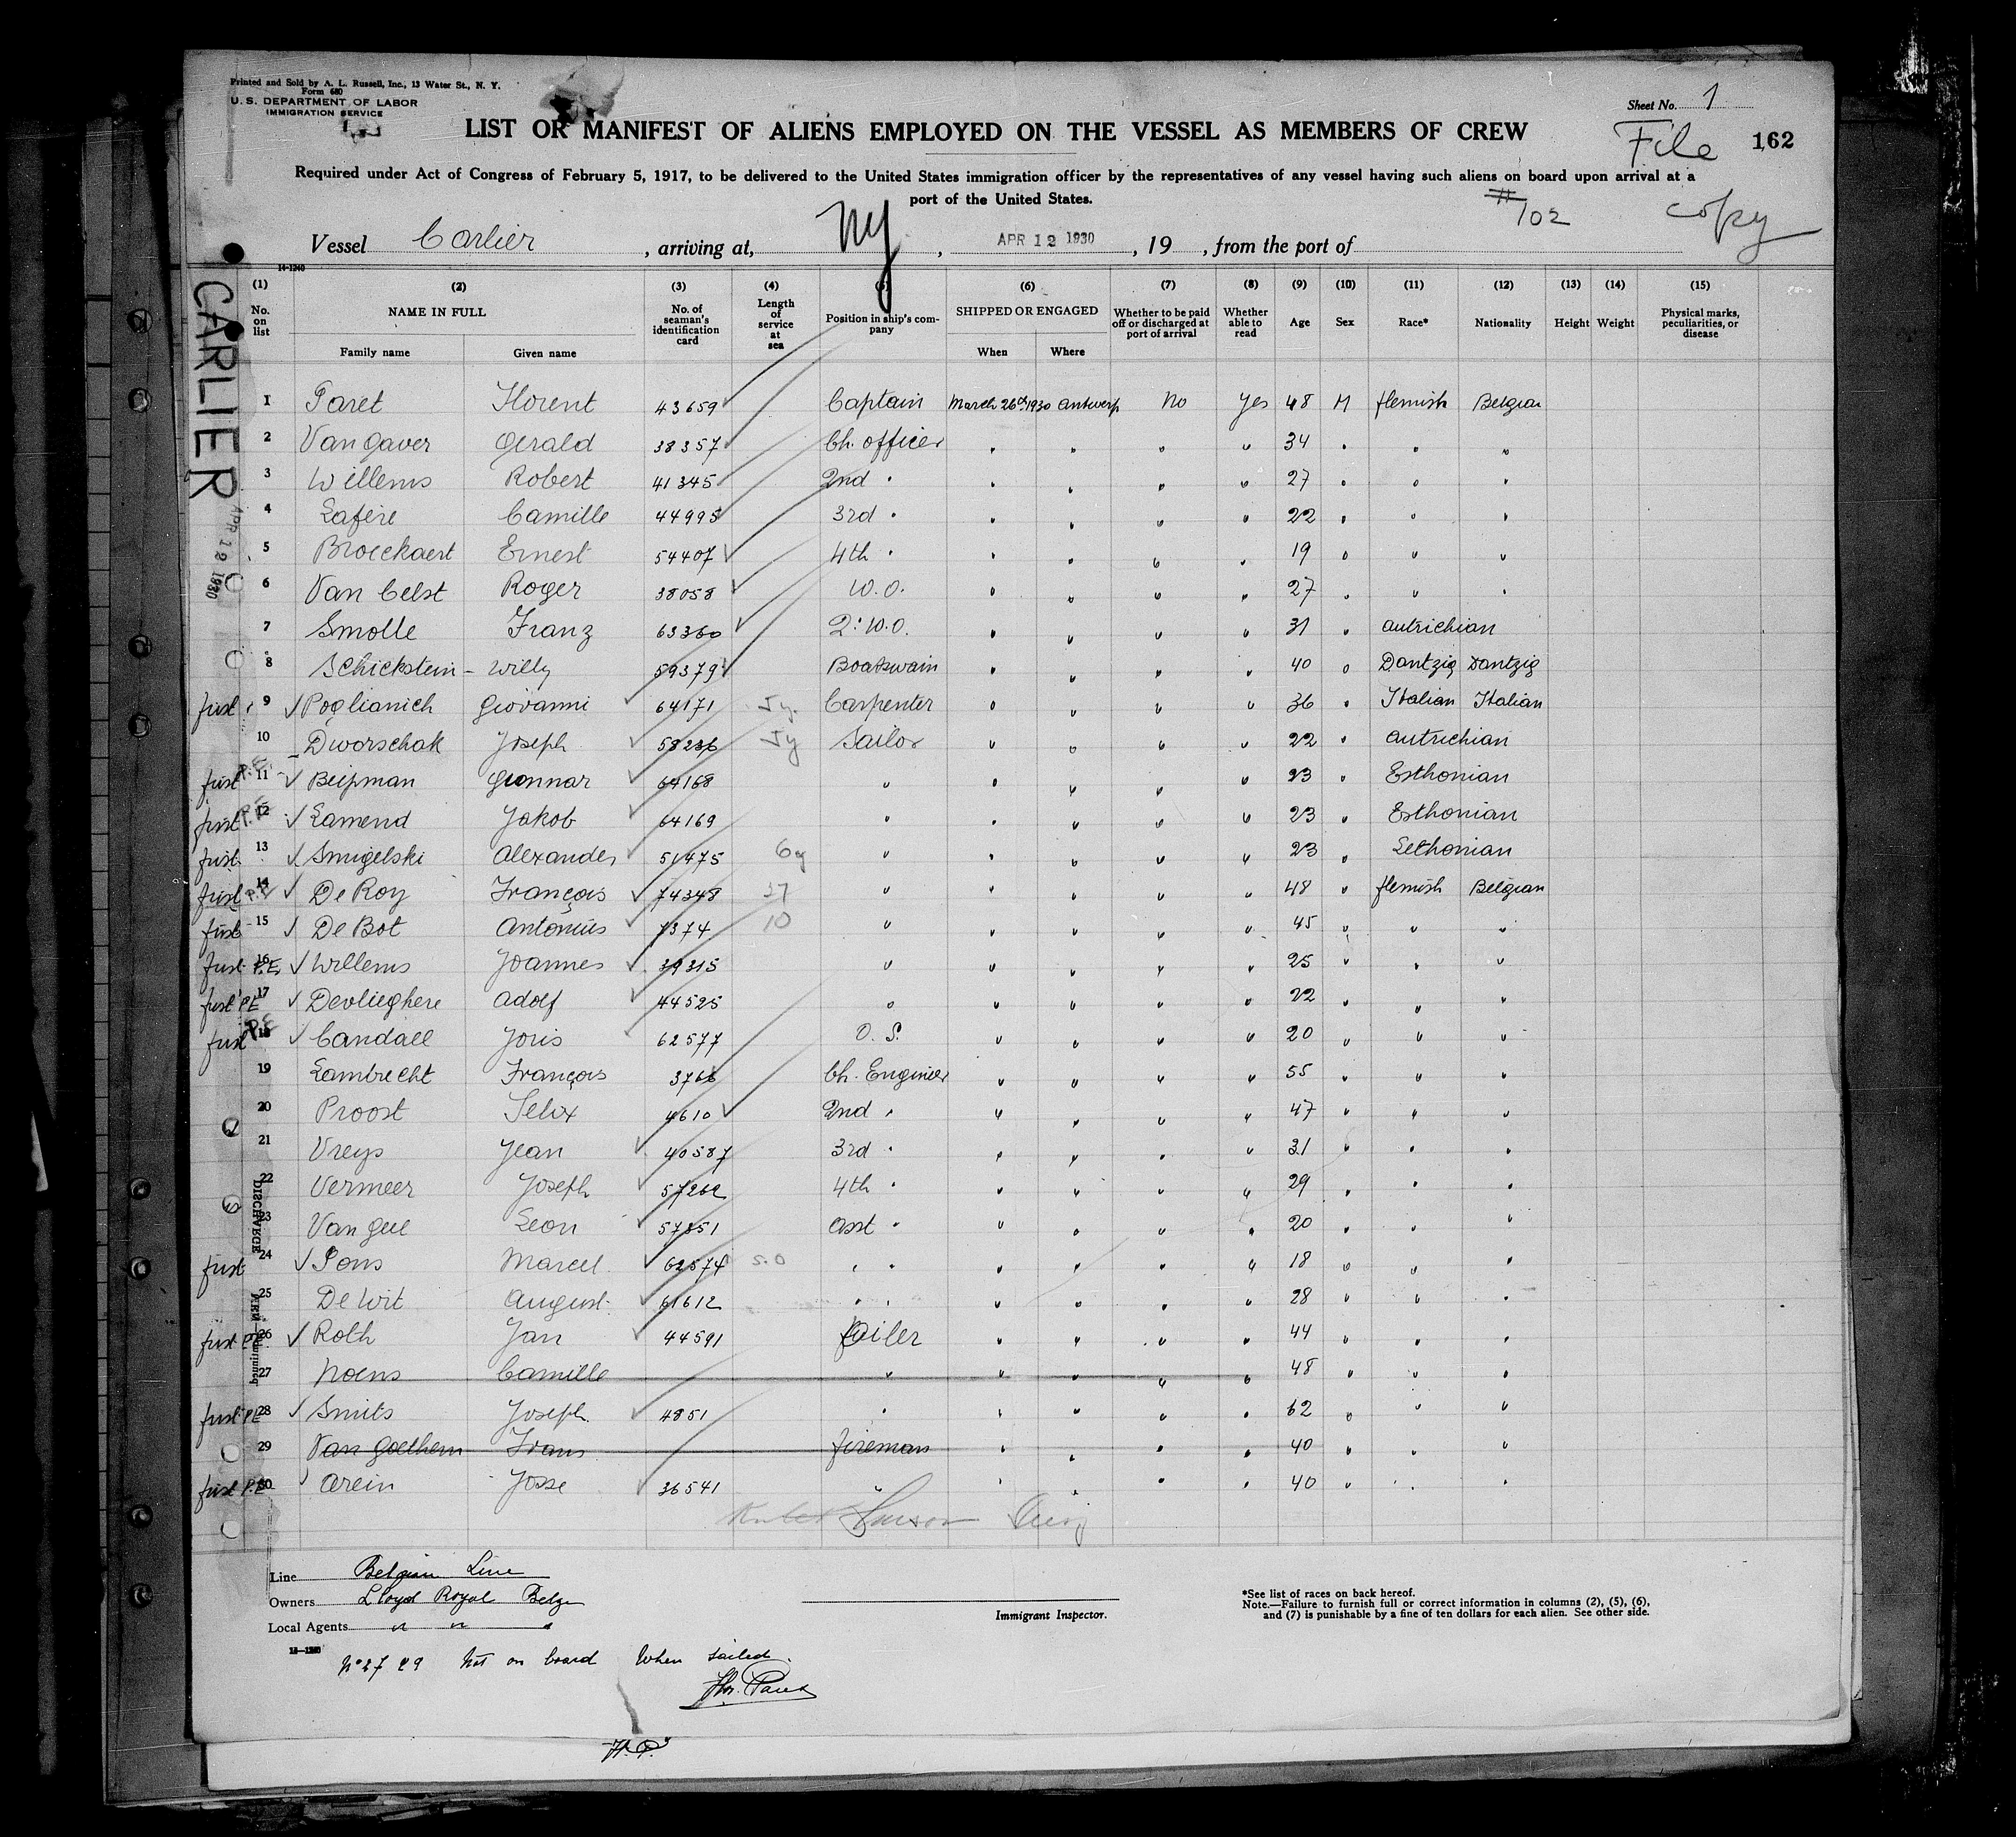 Printed and Sold by A. L. Russell, Inc., 13 Water St., N. Y.
Form 680
U. S. DEPARTMENT OF LABOR
IMMIGRATION SERVICE
Sheet No. 1
LIST OR MANIFEST OF ALIENS EMPLOYED ON THE VESSEL AS MEMBERS OF CREW
File 162
Required under Act of Congress of February 5, 1917, to be delivered to the United States immigration officer by the representatives of any vessel having such aliens on board upon arrival at a
port of the United States.
#102 copy
Vessel Carlier , arriving at, NY , APR 12 1930 , 19 , from the port of
14-1240
CARLIER
APR 12 1930
(1) (2) (3) (4) (5) (6) (7) (8) (9) (10) (11) (12) (13) (14) (15)
No. on list NAME IN FULL No. of seaman's identification card Length of service at sea Position in ship's company SHIPPED OR ENGAGED Whether to be paid off or discharged at port of arrival Whether able to read Age Sex Race* Nationality Height Weight Physical marks, peculiarities, or disease
Family name Given name When Where
1 Paret Florent 43659 Captain March 26th 1930 Antwerp No Yes 48 M flemish Belgian
2 Van Gaver Gerald 38357 Ch. officer " " " " 34 " " "
3 Willems Robert 41345 2nd " " " " " 27 " " "
4 Lafère Camille 44995 3rd " " " " " 22 " " "
5 Broeckaert Ernest 54407 4th " " " " " 19 " " "
6 Van Celst Roger 38058 W.O. " " " " 27 " " "
7 Smolle Franz 63360 2: W.O. " " " " 31 " autrichian
8 Schickstein - Willy 59379 Boatswain " " " " 40 " Dantzig Dantzig
first 9 Poglianich Giovanni 64171 5y. Carpenter " " " " 36 " Italian Italian
10 Dworschak Joseph 58236 5y Sailor " " " " 22 " autrichian
first P.E. 11 Beipman Gunnar 64168 " " " " " 23 " Esthonian
first P.E. 12 Lamend Jakob 64169 " " " " " 23 " Esthonian
first 13 Smigelski Alexander 51475 6y " " " " " 23 " Lethonian
first P.E. 14 De Roy François 74348 27 " " " " " 48 " flemish Belgian
first 15 De Bot Antonius 7374 10 " " " " " 45 " " "
first P.E. 16 Willems Joannes 39315 " " " " " 25 " " "
first P.E 17 Devlieghere Adolf 44525 " " " " " 22 " " "
first P.E 18 Candall Joris 62577 O. S. " " " " 20 " " "
19 Lambrecht François 3766 Ch. Engineer " " " " 55 " " "
20 Proost Felix 4610 2nd " " " " " 47 " " "
21 Vreys Jean 40587 3rd " " " " " 31 " " "
22 Vermeer Joseph 57262 4th " " " " " 29 " " "
23 Van geel Leon 57351 asst " " " " " 20 " " "
first 24 Pons Marcel 62574 S.O " " " " " " 18 " " "
25 De Wit August 61612 " " " " " " 28 " " "
first P.E. 26 Roth Jan 44591 Oiler " " " " 44 " " "
27 Noens Camille " " " " " 48 " " "
first P.E 28 Smits Joseph 4851 " " " " " 62 " " "
29 Van Goethem Frans fireman " " " " 40 " " "
first P.E 30 Arein Josse 36541 " " " " " 40 " " "
DISCHARGE
Line Belgian Line
Owners Lloyd Royal Belge
Local Agents " " "
Immigrant Inspector.
*See list of races on back hereof.
Note.—Failure to furnish full or correct information in columns (2), (5), (6),
and (7) is punishable by a fine of ten dollars for each alien. See other side.
14—1240
No 27 29 Not on board when sailed.
Flor. Paret